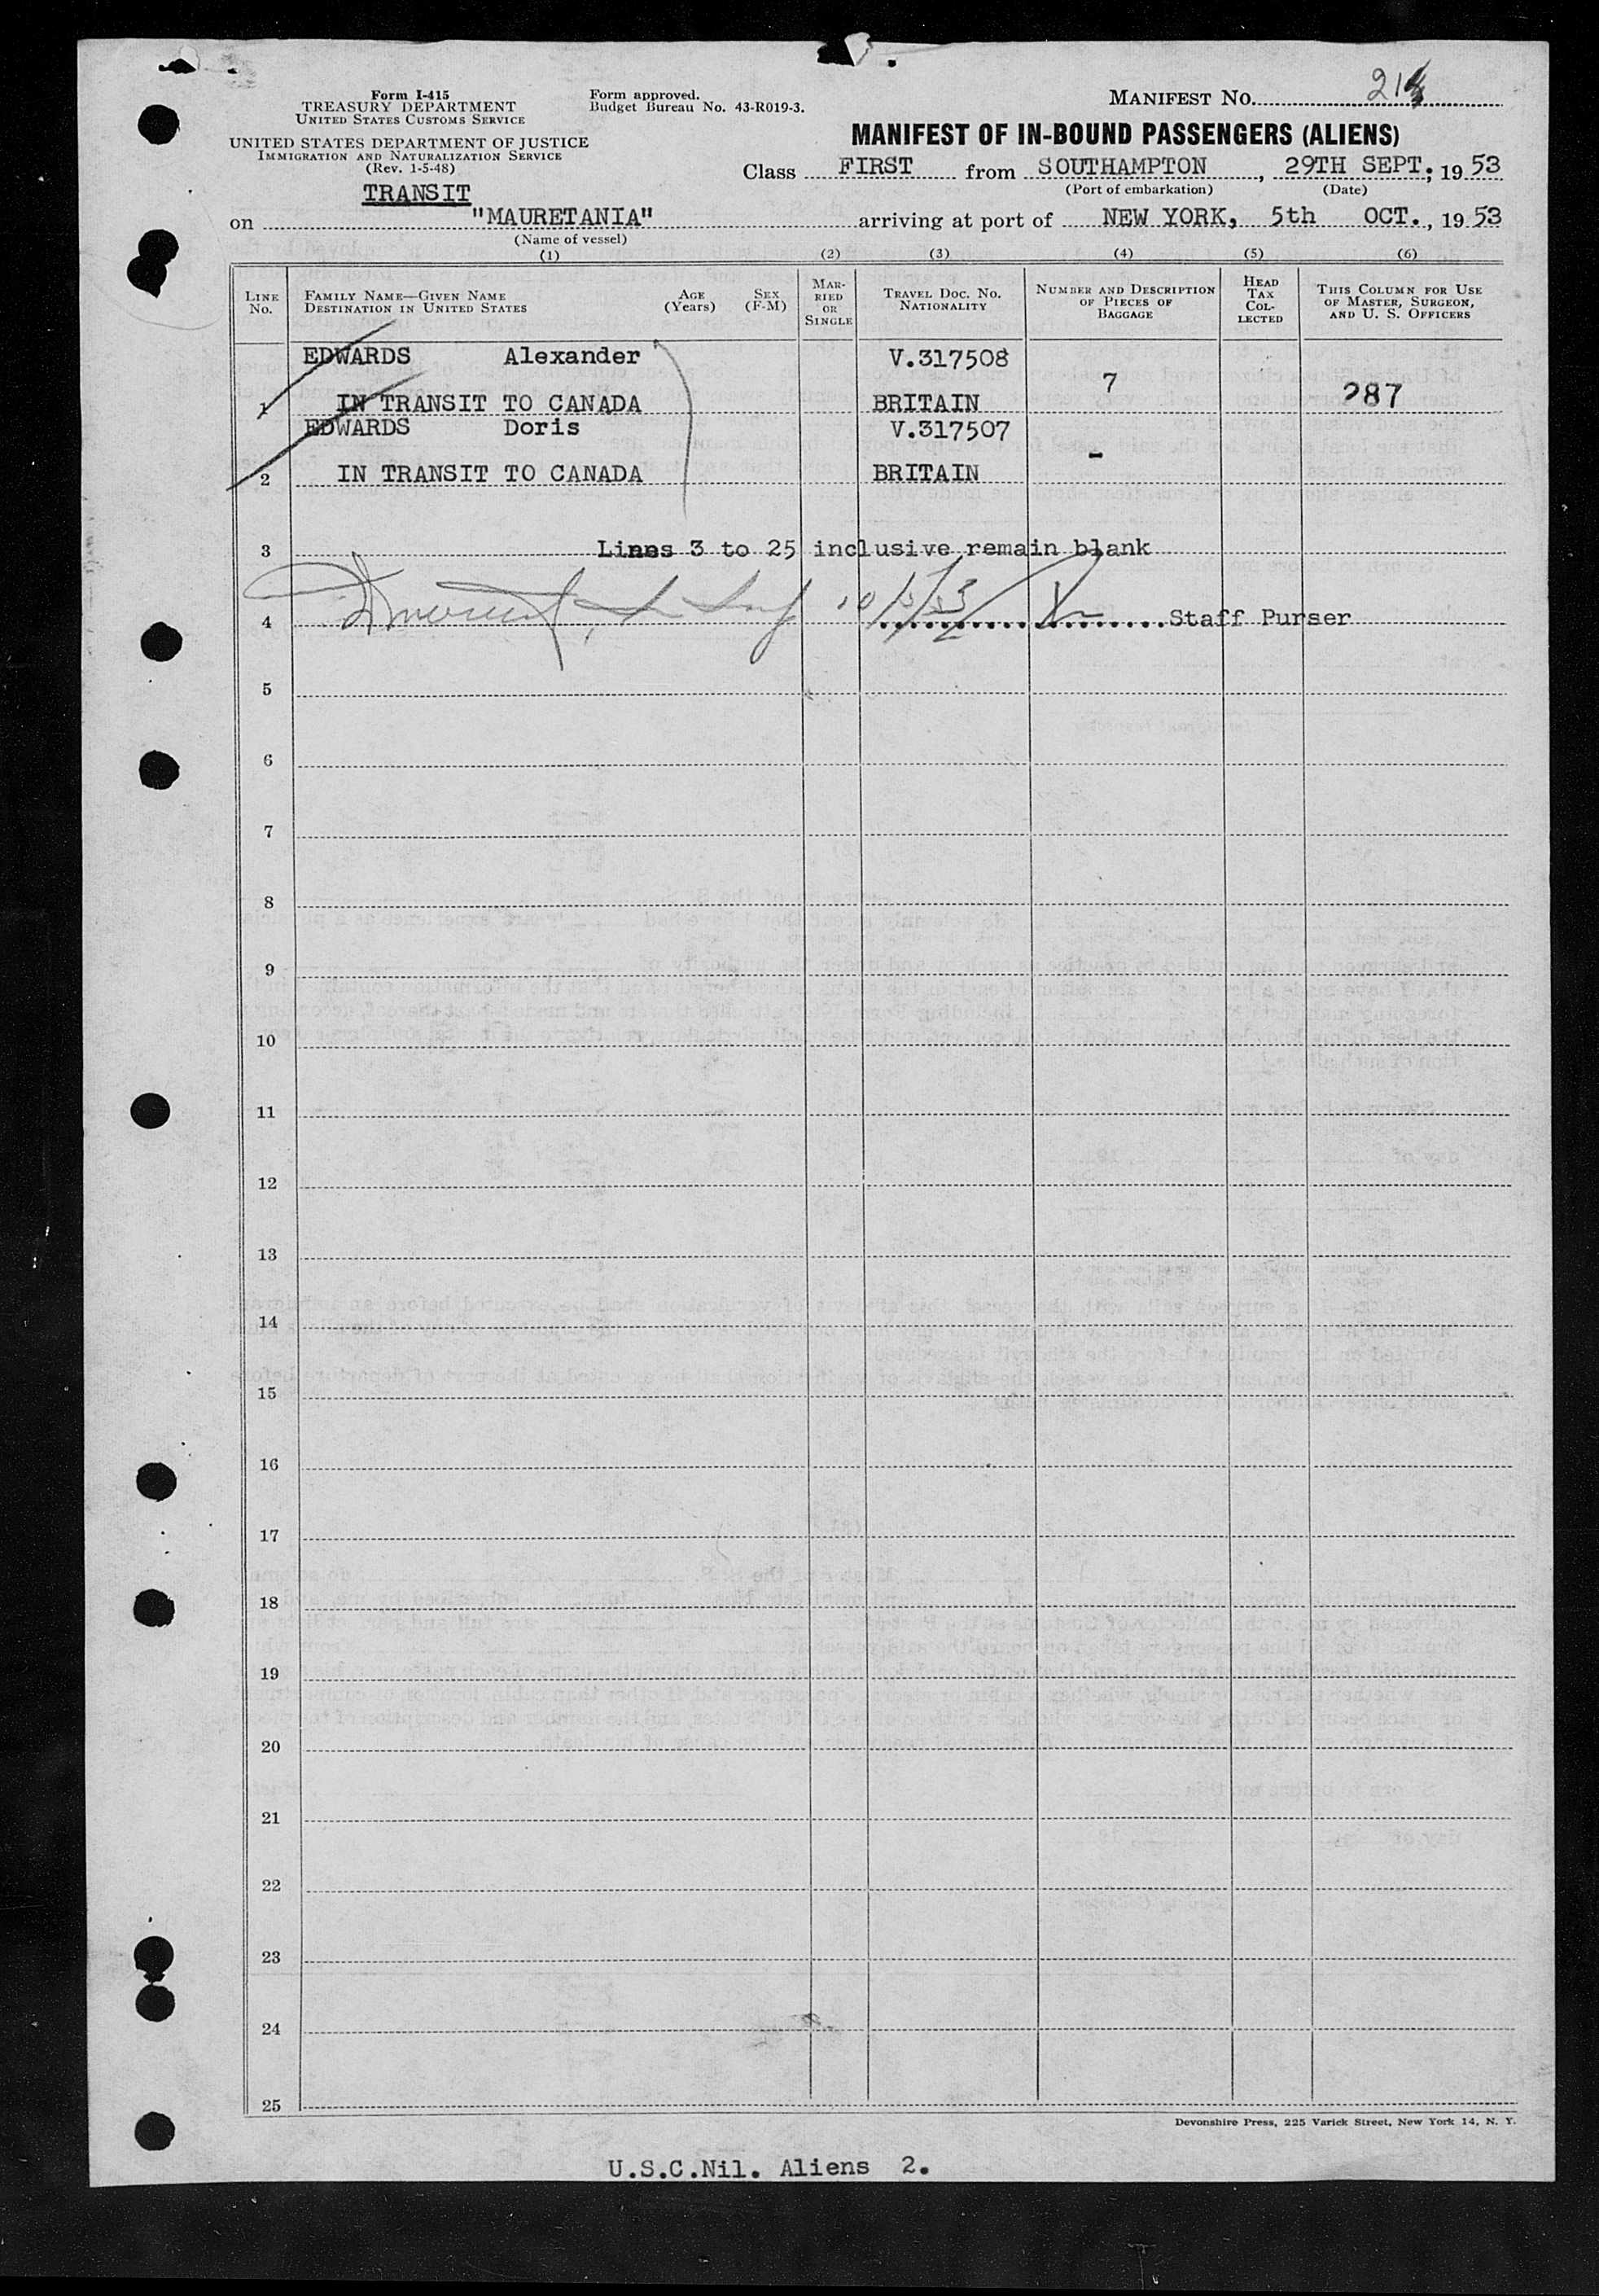 Form I-415
TREASURY DEPARTMENT
UNITED STATES CUSTOMS SERVICE
UNITED STATES DEPARTMENT OF JUSTICE
IMMIGRATION AND NATURALIZATION SERVICE
(Rev. 1-5-48)
Form approved.
Budget Bureau No. 43-R019-3.
MANIFEST NO.
MANIFEST OF IN-BOUND PASSENGERS (ALIENS)
Class FIRST from SOUTHAMPTON, 29TH SEPT; 1953
(Port of embarkation) (Date)
TRANSIT
on "MAURETANIA" arriving at port of NEW YORK, 5th OCT., 1953
(Name of vessel)
(1) (2) (3) (4) (5) (6)
LINE No.
FAMILY NAME—GIVEN NAME
DESTINATION IN UNITED STATES
AGE (Years)
SEX (F-M)
MARRIED OR SINGLE
TRAVEL DOC. NO. NATIONALITY
NUMBER AND DESCRIPTION OF PIECES OF BAGGAGE
HEAD TAX COLLECTED
THIS COLUMN FOR USE OF MASTER, SURGEON, AND U. S. OFFICERS
EDWARDS Alexander V.317508
1 IN TRANSIT TO CANADA BRITAIN 7 287
EDWARDS Doris V.317507
2 IN TRANSIT TO CANADA BRITAIN -
3 Lines 3 to 25 inclusive remain blank
4 10/5/53 Staff Purser
5
6
7
8
9
10
11
12
13
14
15
16
17
18
19
20
21
22
23
24
25
Devonshire Press, 225 Varick Street, New York 14, N. Y.
U.S.C.Nil. Aliens 2.